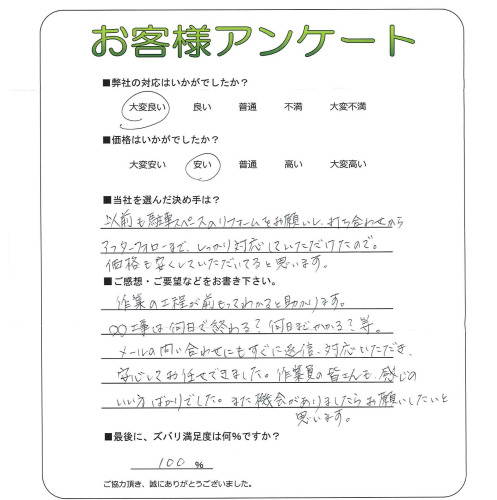 お客様アンケート
■弊社の対応はいかがでしたか?
大変良い 良い 普通 不満 大変不満
■価格はいかがでしたか?
大変安い 安い 普通 高い 大変高い
■当社を選んだ決め手は?
以前も駐車スペースのリフォームをお願いし、打ち合わせから
アフターフォローまで、しっかり対応していただけたので。
価格も安くしていただいてると思います。
■ご感想・ご要望などをお書き下さい。
作業の工程が前もってわかると助かります。
○○工事は何日で終わる?何日までかかる?等。
メールの問い合わせにもすぐに返信、対応いただき、
安心してお任せできました。作業員の皆さんも、感じの
いい方ばかりでした。また機会がありましたらお願いしたいと
思います。
■最後に、ズバリ満足度は何%ですか?
100 %
ご協力頂き、誠にありがとうございました。